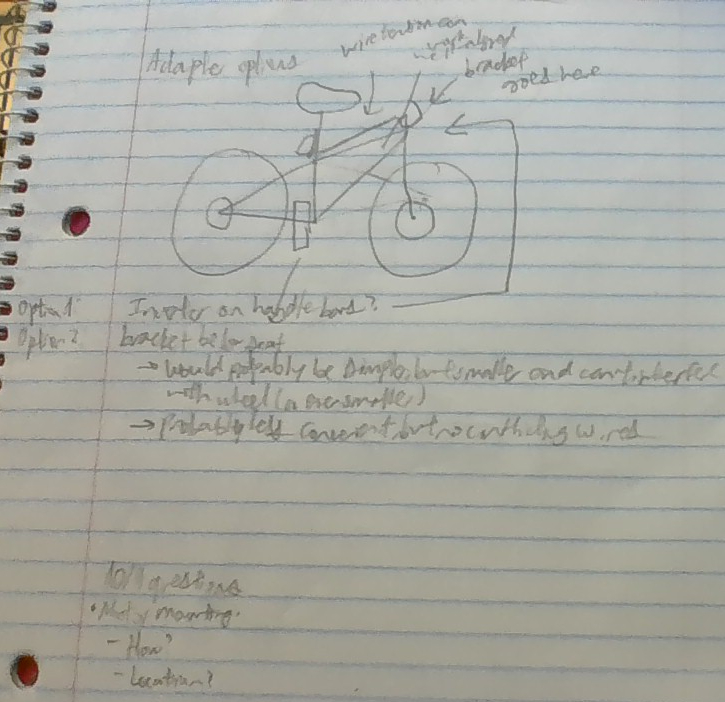 Adaple options
wire
bracket
goes here
Option 1: Inverter on handle bars?
Option 2 bracket below seat
→ would probably be simpler but smaller and can't interfere
with wheel (or even smaller)
→ Probably less convenient, but no
10/11 questions
• mounting.
- How?
- Location?